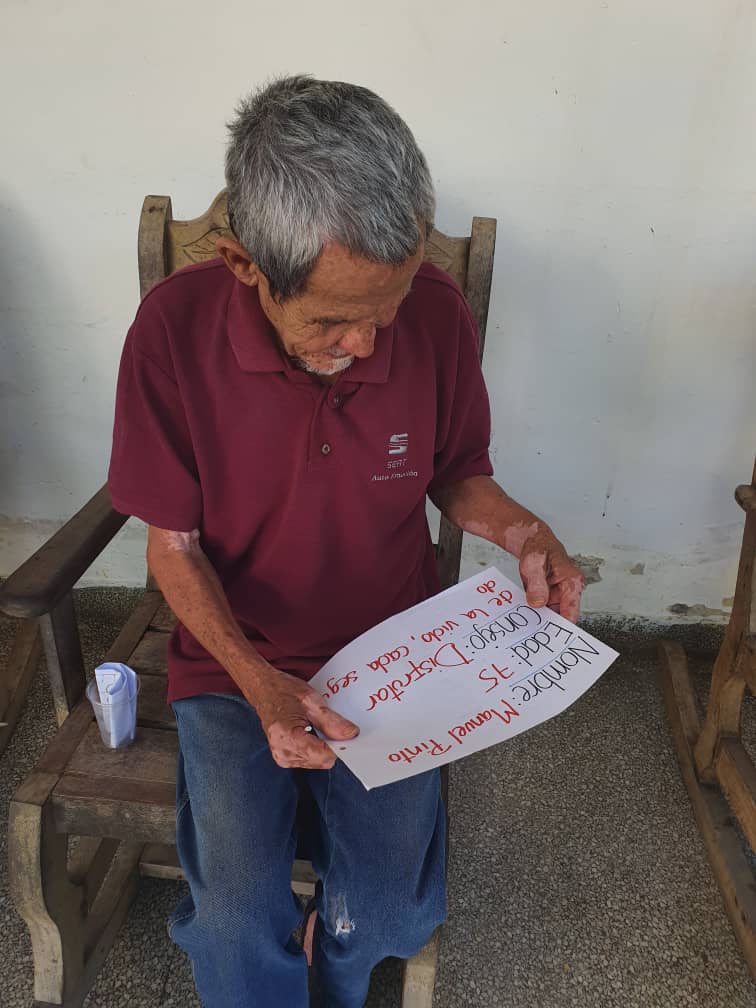 SEAT
Auto emoción
Nombre: Manuel Pinto
Edad: 75
Consejo: Disfrutar
de la vida, cada seg
do